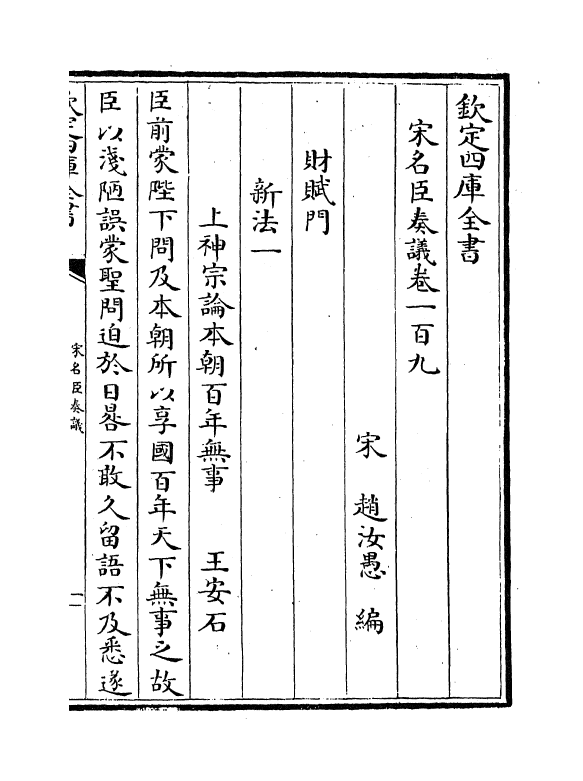 欽定四庫全書
宋名臣奏議卷一百九
宋 趙汝愚 編
財賦門
新法一
上神宗論本朝百年無事 王安石
臣前蒙陛下問及本朝所以享國百年天下無事之故
臣以淺陋誤蒙聖問迫於日晷不敢久留語不及悉遂
欽定四庫全書
宋名臣奏議
一